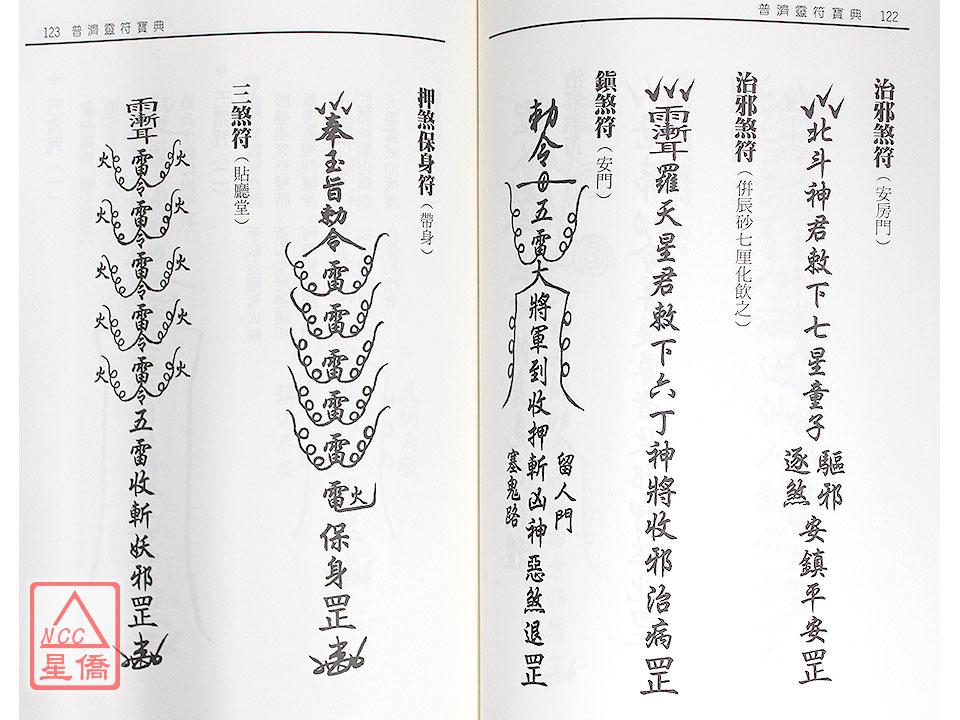 普濟靈符寶典 122
治邪煞符（安房門）
北斗神君敕下七星童子 驅邪 逐煞 安鎮平安罡
治邪煞符（併辰砂七厘化飲之）
羅天星君敕下六丁神將收邪治病罡
鎮煞符（安門）
勅令 五雷大將軍到收押斬凶神惡煞退罡
留人門
塞鬼路
123 普濟靈符寶典
押煞保身符（帶身）
奉玉旨勅令雷雷雷雷雷雷火保身罡
三煞符（貼廳堂）
雷令雷令雷令雷令雷令五雷收斬妖邪罡
火 火
火 火
火 火
火 火
火 火
NCC
星僑